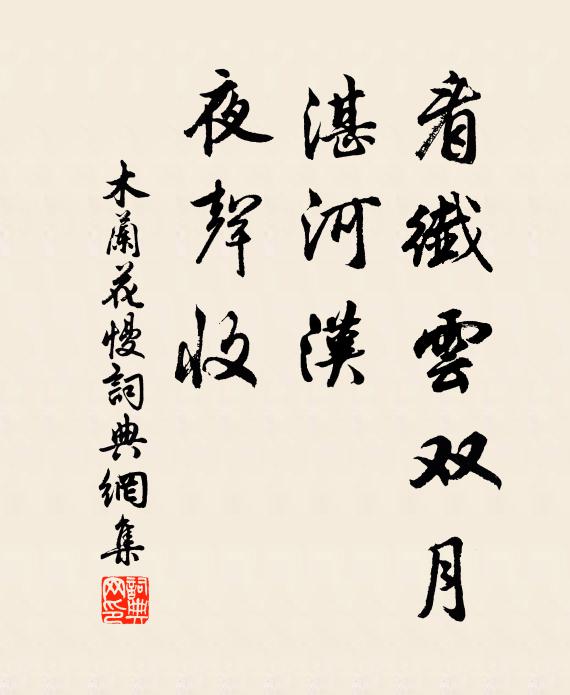 看纖雲双月
湛河漢
夜聲收
木蘭花慢詞典網集
詞典网印